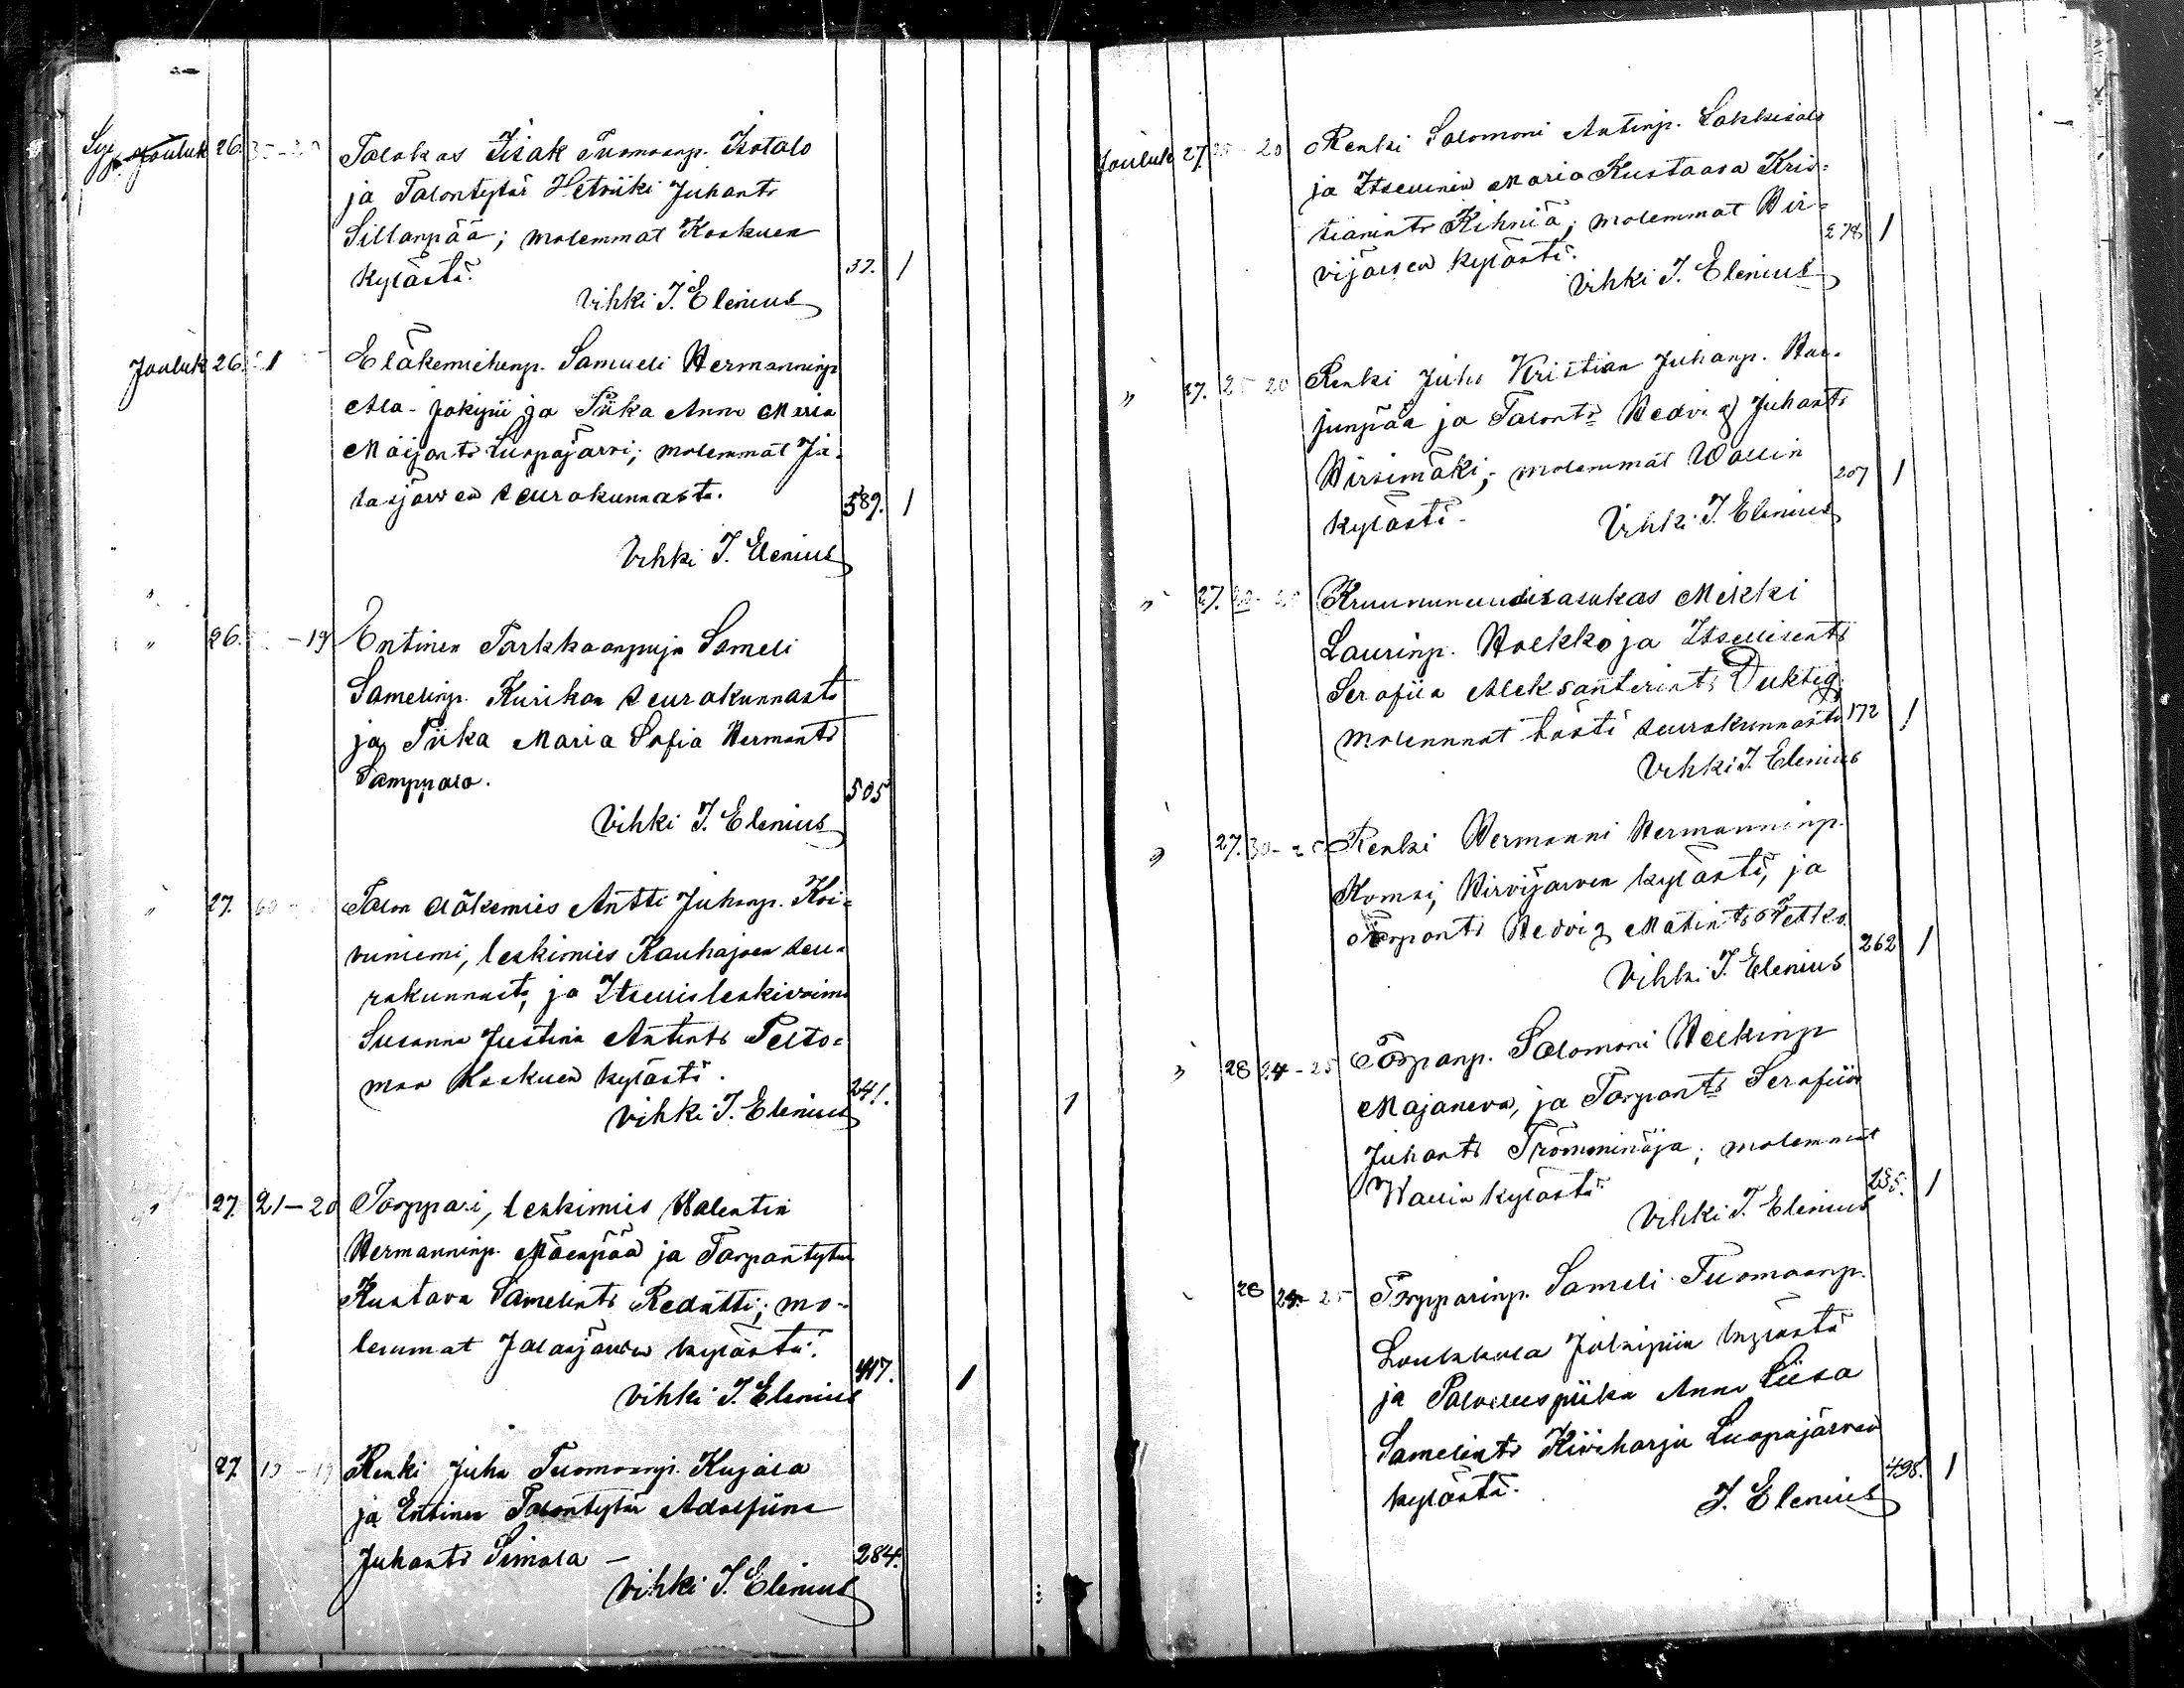 Jouluk 26. Talokas Iisak Tuomaanp. Isotalo
ja Talontytär Hetviiki Juhant.
Sillanpää; molemmat Koskuen
kylästä. 37. 1
Vihki J. Elenius
Jouluk 26. Eläkemiehenp. Samueli Hermanninp
Ala-Jokipii ja Piika Anna Maria
Maijant. Luopajärvi; molemmat Ja-
lasjärven seurakunnasta. 589. 1
Vihki J. Elenius
" 26. -19 Entinen Torkkaanpuja Sameli
Samelinp. Kurikan seurakunnasta
ja Piika Maria Sofia Hermant.
Samppala. 505
Vihki J. Elenius
" 27. Talon eläkemies Antti Juhanp. Koi-
vuniemi, leskimies Kauhajoen seu-
rakunnasta, ja Itsellisleskivaimo
Susanna Justina Antint. Pelto-
maa Koskuen kylästä. 241. 1
Vihki J. Elenius
" 27. 21-20 Torppari, leskimies Walentin
Hermanninp. Mäenpää ja Torpantytär
Kustava Samelint. Redutti; mo-
lemmat Jalasjärven kylästä. 417. 1
Vihki J. Elenius
27. 19-19 Renki Juha Tuomaanp. Kujala
ja Entinen Talontytär Adolfiina
Juhant. Simola - 284.
Vihki J. Elenius
Jouluk 27. 25-20 Renki Salomoni Antinp. Lakkisalo
ja Itsellinen Maria Kustaava Kris-
tianint. Kihniä; molemmat Hir-
vijärven kylästä. 278 1
Vihki J. Elenius
" 27. 25 20 Renki Juho Kristian Juhanp. Har-
junpää ja Talont. Hedvig Juhant.
Hirsimäki; molemmat Wallin
kylästä. 207 1
Vihki J. Elenius
" 27. Kruununuudisasukas Mikki
Laurinp. Holkko ja Itsellisent.
Serafiia Aleksanterint. Duktig;
molemmat tästä seurakunnasta 172 1
Vihki J. Elenius
" 27. 30-25 Renki Hermanni Hermanninp.
Komsi, Hirvijärven kylästä, ja
Torpant. Hedvig Matint. Petko. 262 1
Vihki J. Elenius
" 28 24-25 Torpanp. Salomoni Heikinp
Majaneva, ja Torpant. Serafiia
Juhant. Trömminäja; molemmat
Wallin kylästä. 235. 1
Vihki J. Elenius
28 24-25 Torpparinp. Sameli Tuomaanp.
Loukkola Jokipiin kylästä
ja Palveluspiika Anna Liisa
Samelint. Kiviharju Luopajärven
kylästä. 498. 1
J. Elenius